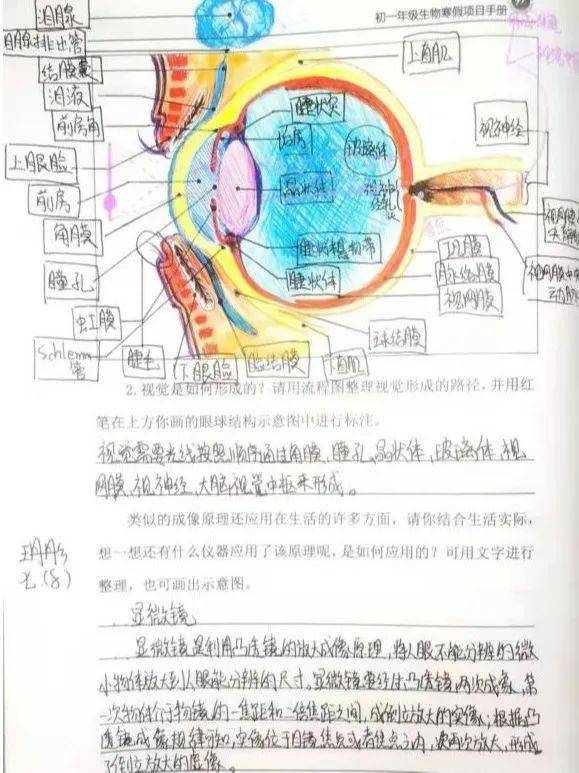 初一年级生物寒假项目手册
泪腺
泪腺排出管
结膜囊
泪液
前房角
上眼睑
前房
角膜
瞳孔
虹膜
Schlemm
管
睫毛
下眼睑
睑结膜
下直肌
球结膜
上直肌
后房
玻璃体
晶状体
睫状体
巩膜
脉络膜
视网膜
视神经
2. 视觉是如何形成的?请用流程图整理视觉形成的路径,并用红
笔在上方你画的眼球结构示意图中进行标注。
视觉需要光线按照顺序通过角膜、瞳孔、晶状体、玻璃体、视
网膜、视神经、大脑视觉中枢来形成。
类似的成像原理还应用在生活的许多方面,请你结合生活实际,
想一想还有什么仪器应用了该原理呢,是如何应用的?可用文字进行
整理,也可画出示意图。
显微镜
显微镜是利用凸透镜的放大成像原理,将人眼不能分辨的微
小物体放大到人眼能分辨的尺寸。显微镜要经过凸透镜两次成像,第
一次物体介于物镜的一焦距和二倍焦距之间,成倒立放大的实像;根据凸
透镜成像规律可知,实像位于目镜焦点或者焦点之内,使两次放大,形成
了倒立放大的虚像。